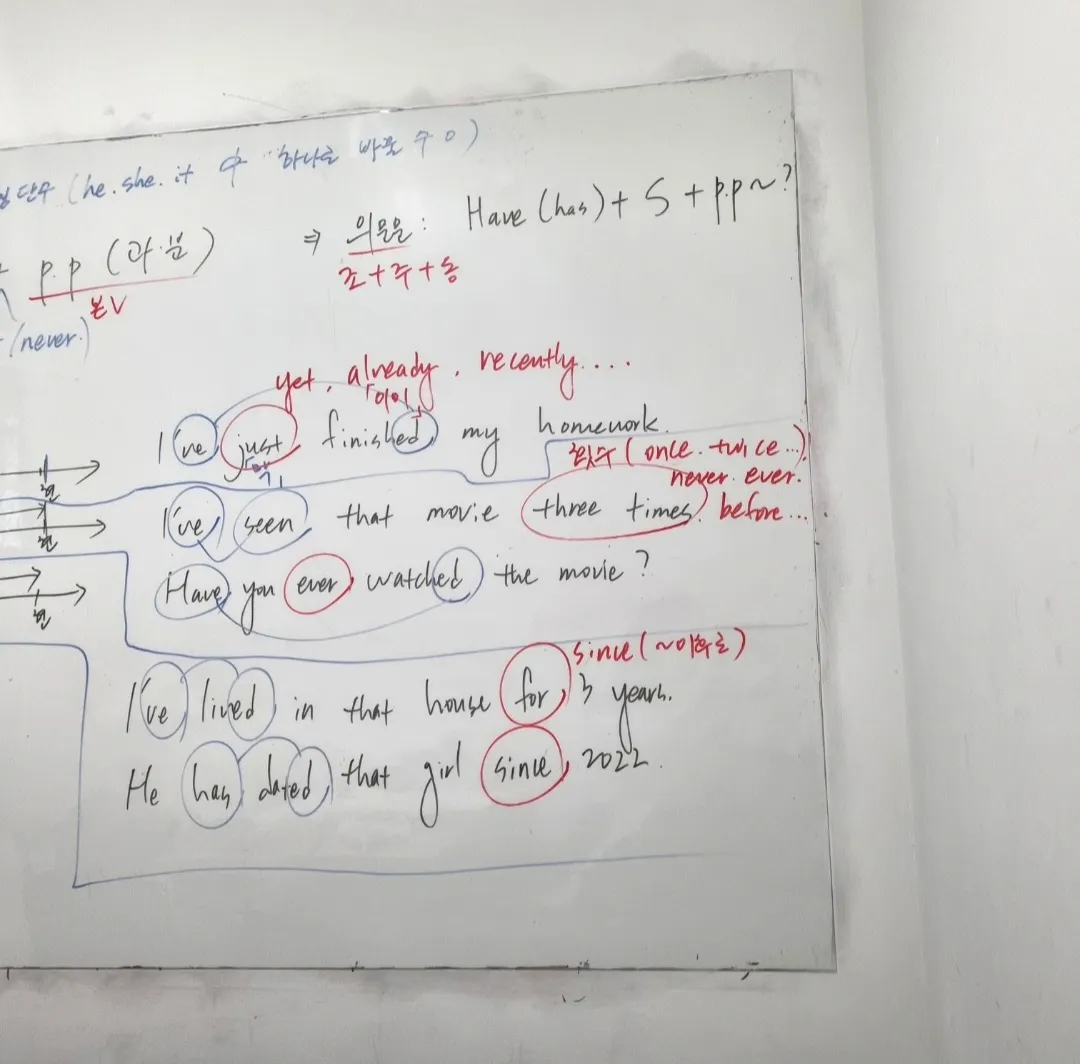 단수 (he. she. it 中 하나로 바꿀 수 O)
p.p (과.분)
본V
(never.)
⇒ 의문문: Have (has) + S + p.p ~?
조 + 주 + 동
yet, already, recently....
「이미」
I've just finished my homework.
막
횟수 (once. twice...)
never. ever.
현
I've seen that movie three times. before...
현
Have you ever watched the movie?
현
since (~이후로)
I've lived in that house for 3 years.
He has dated that girl since 2022.